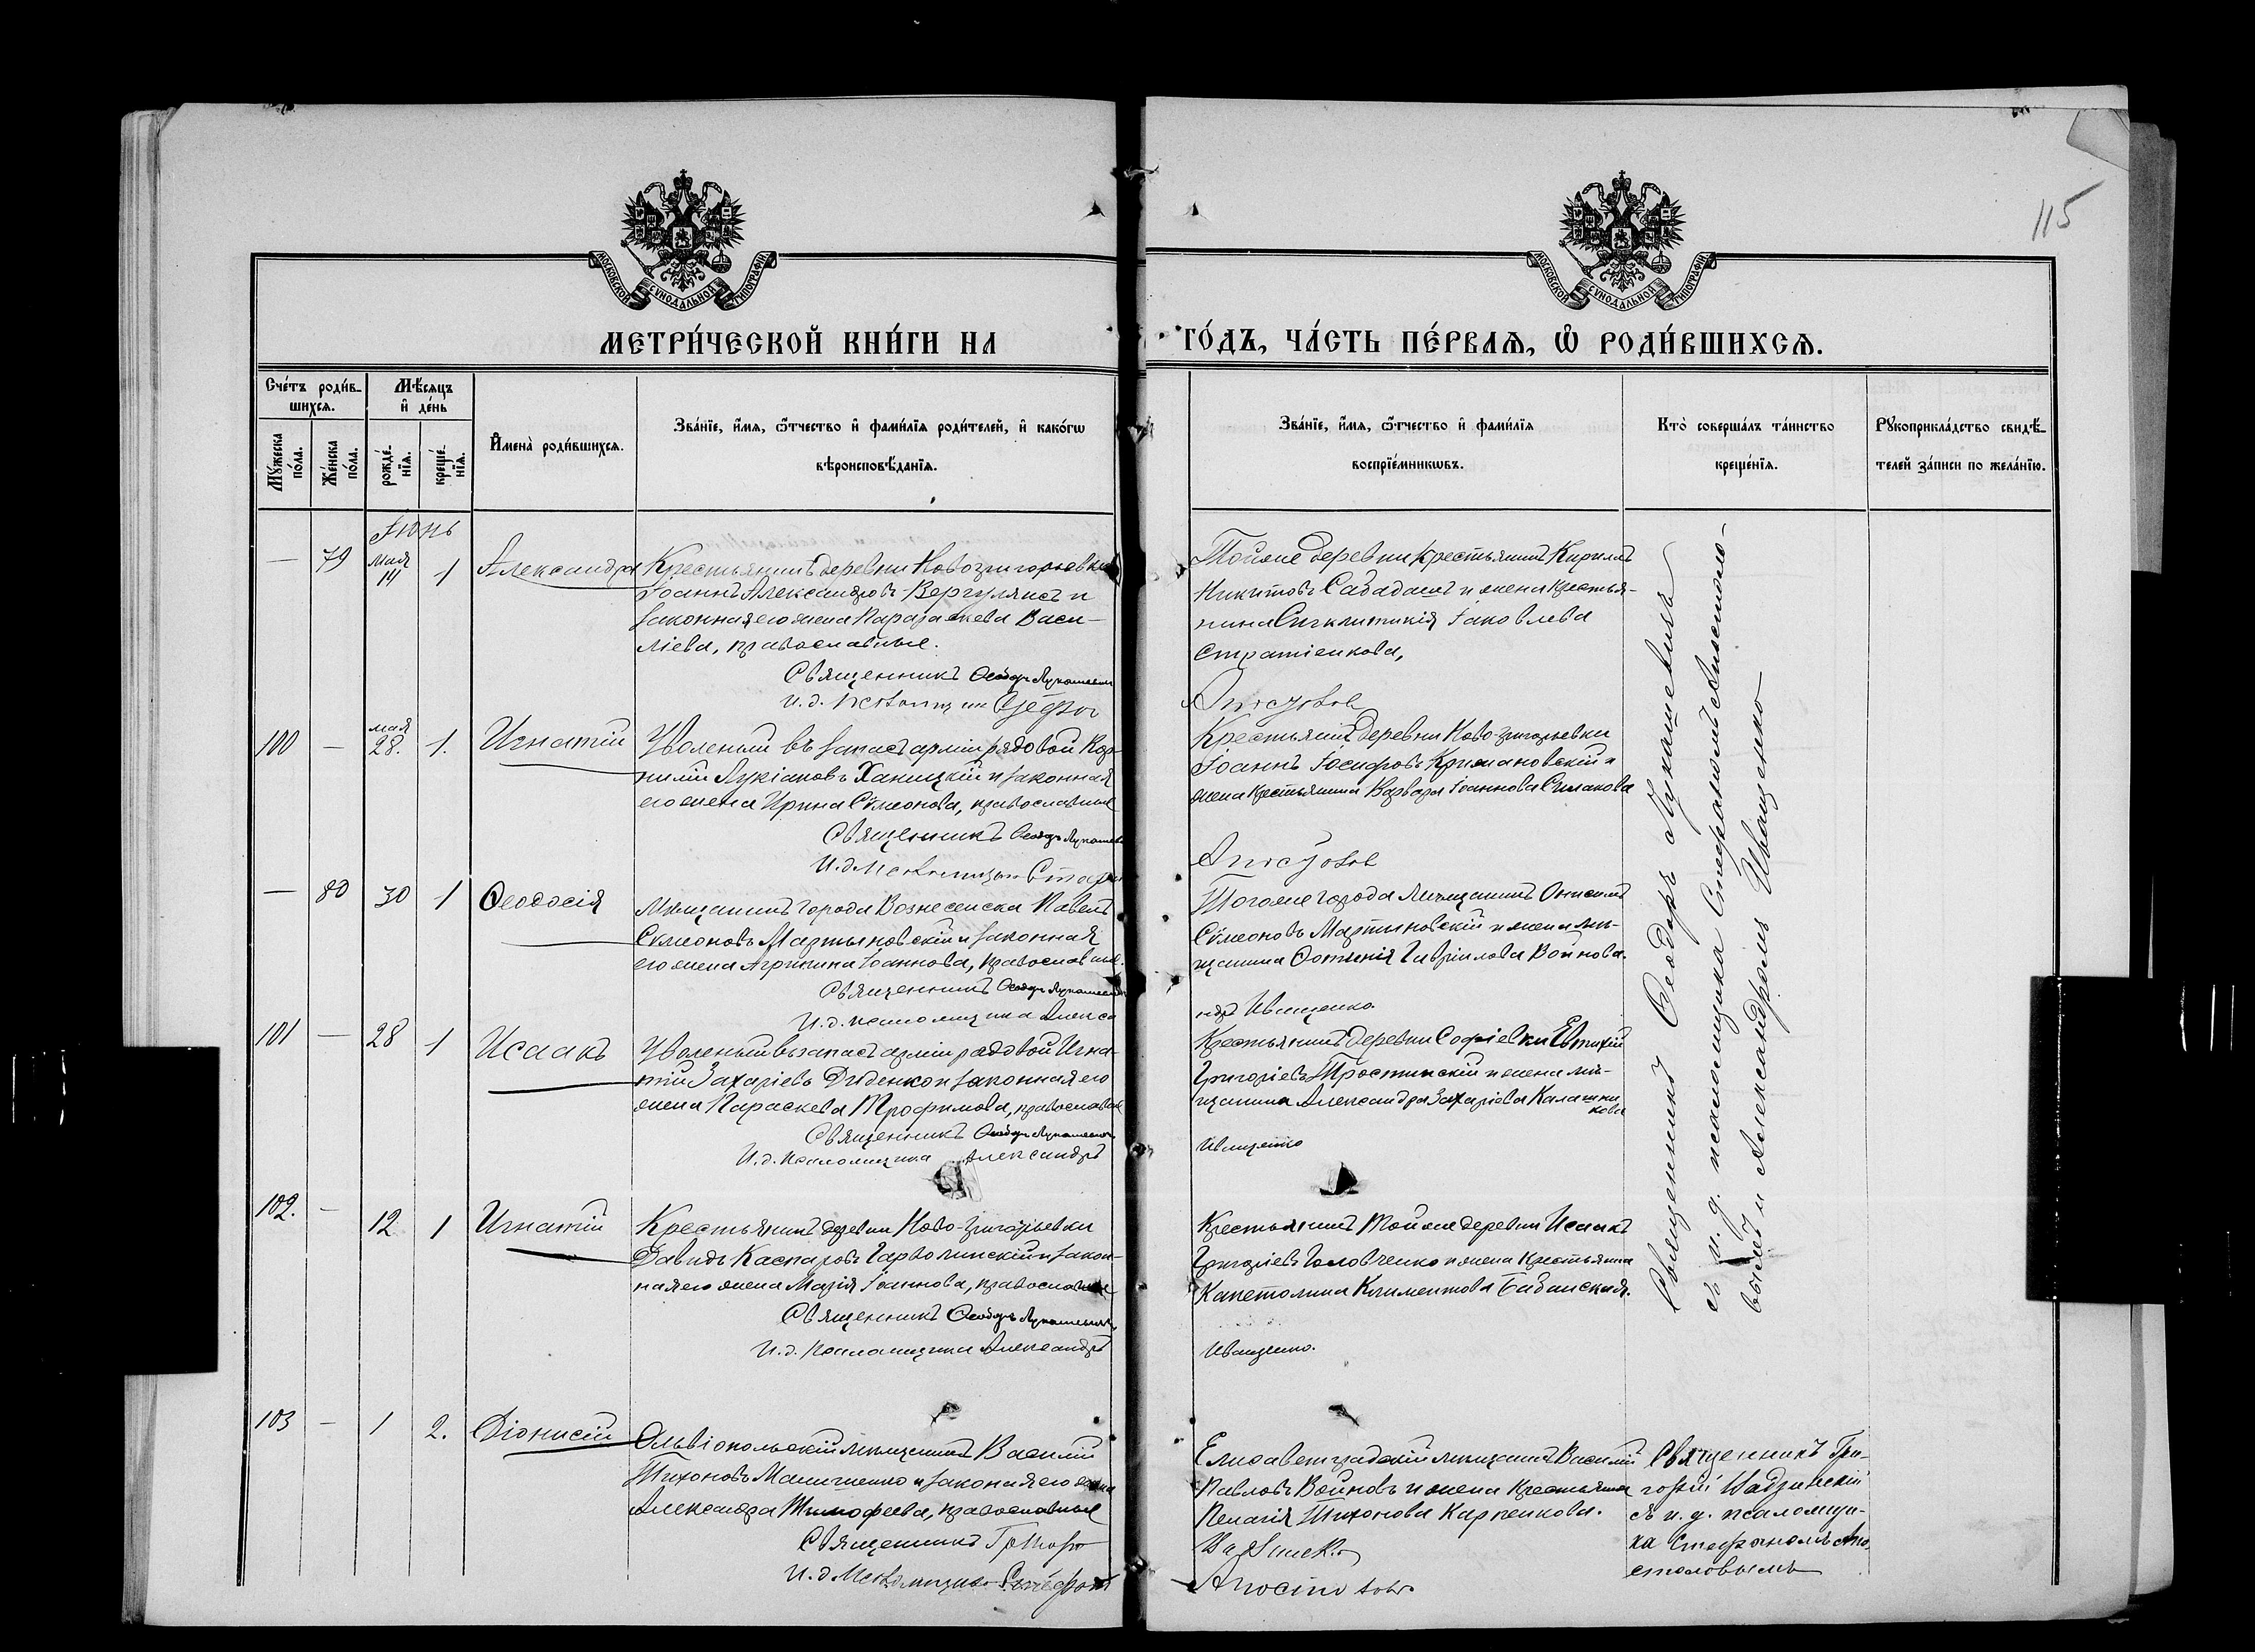 115
МОСКОВСКОЙ СѴНОДАЛЬНОЙ ТИПОГРАФІИ
МОСКОВСКОЙ СѴНОДАЛЬНОЙ ТИПОГРАФІИ
МЕТРИ́ЧЕСКОЙ КНИ́ГИ НА
ГО́ДЪ, ЧА́СТЬ ПЕ́РВАѦ, Ѡ РОДИ́ВШИХСѦ.
Сче́тъ роди́в-
шихсѧ.
Мꙋ́жеска по́ла.
Же́нска по́ла.
Мѣ́сѧцъ и҆ де́нь
рожде́нїѧ.
креще́нїѧ.
И҆мена̀ роди́вшихсѧ.
Зва́нїе, и҆́мѧ, ѻ҆́тчество и҆ фами́лїѧ роди́телей, и҆ како́гѡ
вѣроисповѣ́данїѧ.
Зва́нїе, и҆́мѧ, ѻ҆́тчество и҆ фами́лїѧ
воспрїе́мникѡвъ.
Кто̀ соверша́лъ та́инство
креще́нїѧ.
Рꙋкоприкла́дство свидѣ́-
телей за́писи по жела́нїю.
Іюнь
— 79 мая 14 1 Александра
Крестьянинъ деревни Новогригорьевки
Іоаннъ Александровъ Вергулянсъ и
законная его жена Параскева Васи-
ліева, православные.
Священникъ Ѳеодоръ Лукашевичъ
И. д. псаломщика Стефанъ
Тойже деревни крестьянинъ Кирилъ
Никитовъ Сабадашъ и жена крестья-
нина Синклитикія Іаковлева
Стратіенкова,
Апостолов
100 — мая 28. 1. Игнатій
Уволеный въ запасъ арміи рядовой Кор-
нилій Лукіановъ Ханицкій и законная
его жена Ирина Сѵмеонова, православные
Священникъ Ѳеодоръ Лукашевичъ
И. д. псаломщика Стефан
Крестьянинъ деревни Ново-Григорьевки
Іоаннъ Іосифовъ Крижановскій и
жена крестьянина Варвара Іоаннова Симакова
Апостолов
— 80 30 1 Ѳеодосія
Мѣщанинъ города Вознесенска Павелъ
Сѵмеоновъ Мартыновскій и законная
его жена Агрипина Іоаннова, православные.
Священникъ Ѳеодоръ Лукашевичъ
И. д. псаломщика Алекса
Тогоже города мѣщанинъ Онисимъ
Сѵмеоновъ Мартыновскій и жена мѣ-
щанина Фотинія Гавріилова Войнова.
ндръ Иващенко.
101 — 28 1 Исаакъ
Уволеный въ запасъ арміи рядовой Игна-
тій Захаріевъ Диденко и законная его
жена Параскева Трофимова, православные
Священникъ Ѳеодоръ Лукашевичъ
И. д. псаломщика Александръ
Крестьянинъ деревни Софіевки Евтихій
Григоріевъ Тростинскій и жена мѣ-
щанина Александра Захаріева Калашни
кова
Иващенко
102. — 12 1 Игнатій
Крестьянинъ деревни Ново-Григорьевки
Давидъ Каспаровъ Гарволинскій и закон-
ная его жена Марія Іоаннова, православные
Священникъ Ѳеодоръ Лукашевичъ
И. д. псаломщика Александръ
Крестьянинъ тойже деревни Исаакъ
Григоріевъ Головченко и жена крестьянина
Капетолина Климентова Бабанская.
Иващенко.
Священникъ Ѳеодоръ Лукашевичъ
съ и. д. псаломщика Стефаномъ Апостоло-
вымъ и Александромъ Иващенко
103 — 1 2. Діонисій
Ольвіопольскій мѣщанинъ Василій
Тихоновъ Маличенко и законная его жена
Александра Тимофеева, православные
Священникъ Григорі
И. д. Псаломщика Стефанъ
Елисаветградскій мѣщанинъ Василій
Павловъ Войновъ и жена крестьянина
Пелагія Тихонова Карпенкова.
Апостолов
Священникъ Гри-
горій
съ и. д. псаломщи-
ка Стефаномъ Апо-
столовымъ